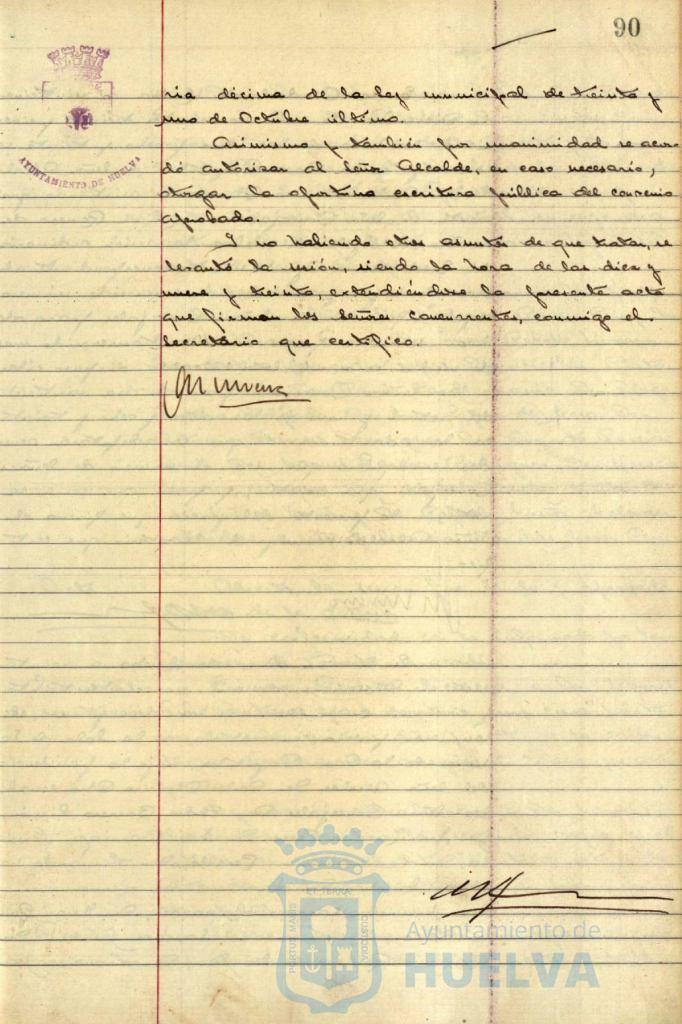 90
AYUNTAMIENTO DE HUELVA
ria décima de la Ley municipal de treinta y
uno de Octubre último.
Asimismo y también por unanimidad se acor-
dó autorizar al Señor Alcalde, en caso necesario,
otorgar la oportuna escritura pública del convenio
aprobado.
Y no habiendo otros asuntos de que tratar, se
levantó la sesión, siendo la hora de las diez y
nueve y treinta, extendiéndose la presente acta
que firman los Señores concurrentes, conmigo el
Secretario que certifico.
PORTUS MARIS ET TERRAE CUSTODIA
Ayuntamiento de
HUELVA